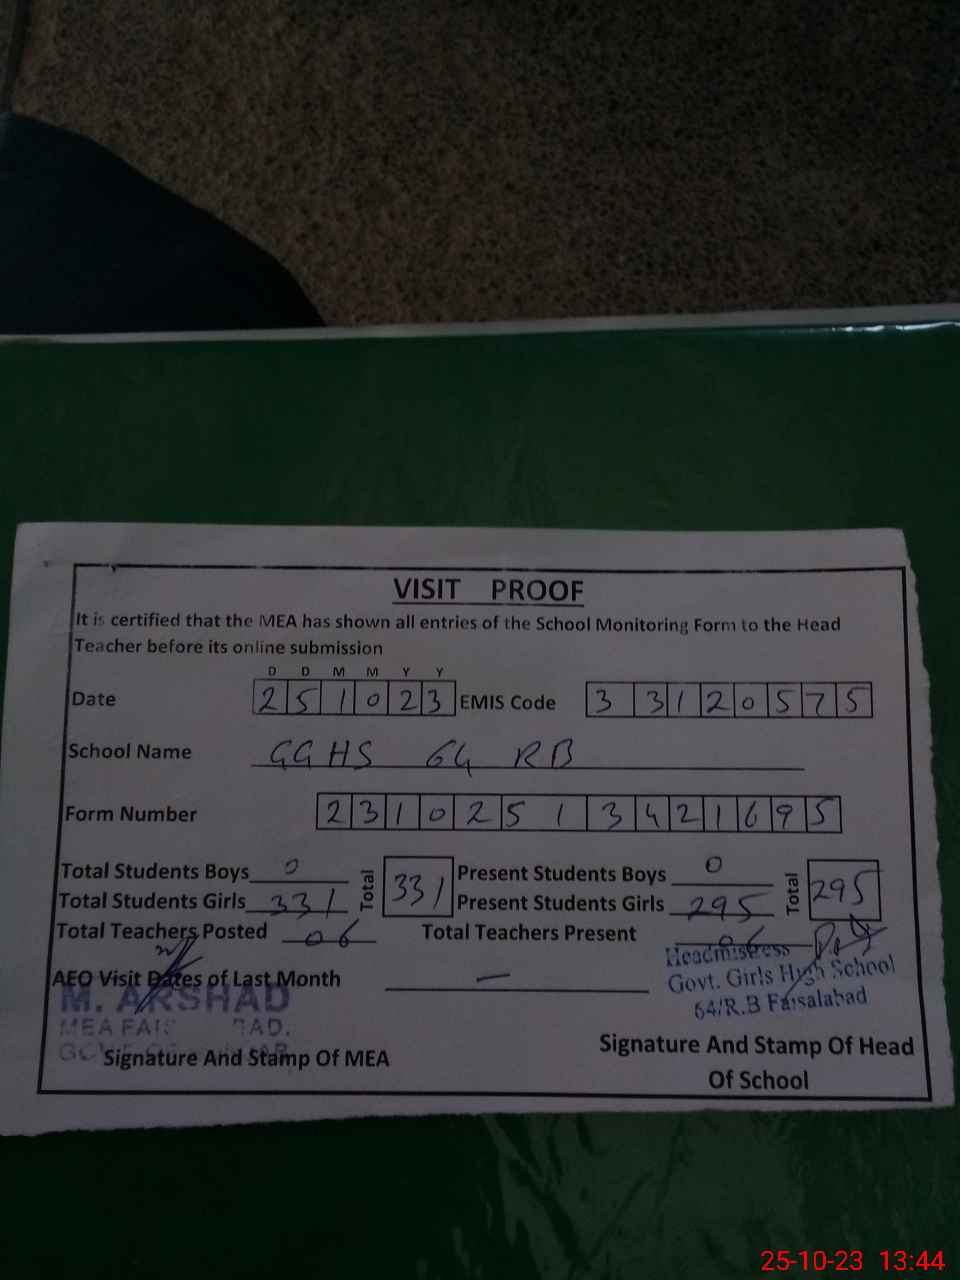 VISIT PROOF
It is certified that the MEA has shown all entries of the School Monitoring Form to the Head
Teacher before its online submission
D D M M Y Y
Date 2 5 1 0 2 3 EMIS Code 3 3 1 2 0 5 7 5
School Name GGHS 64 RB
Form Number 2 3 1 0 2 5 1 3 4 2 1 6 9 5
Total Students Boys 0 Total 331 Present Students Boys 0 Total 295
Total Students Girls 331 Present Students Girls 295
Total Teachers Posted 06 Total Teachers Present 06
AEO Visit Dates of Last Month —
Headmistress
Govt. Girls High School
64/R.B Faisalabad
M. ARSHAD
MEA
Signature And Stamp Of MEA
Signature And Stamp Of Head
Of School
25-10-23 13:44